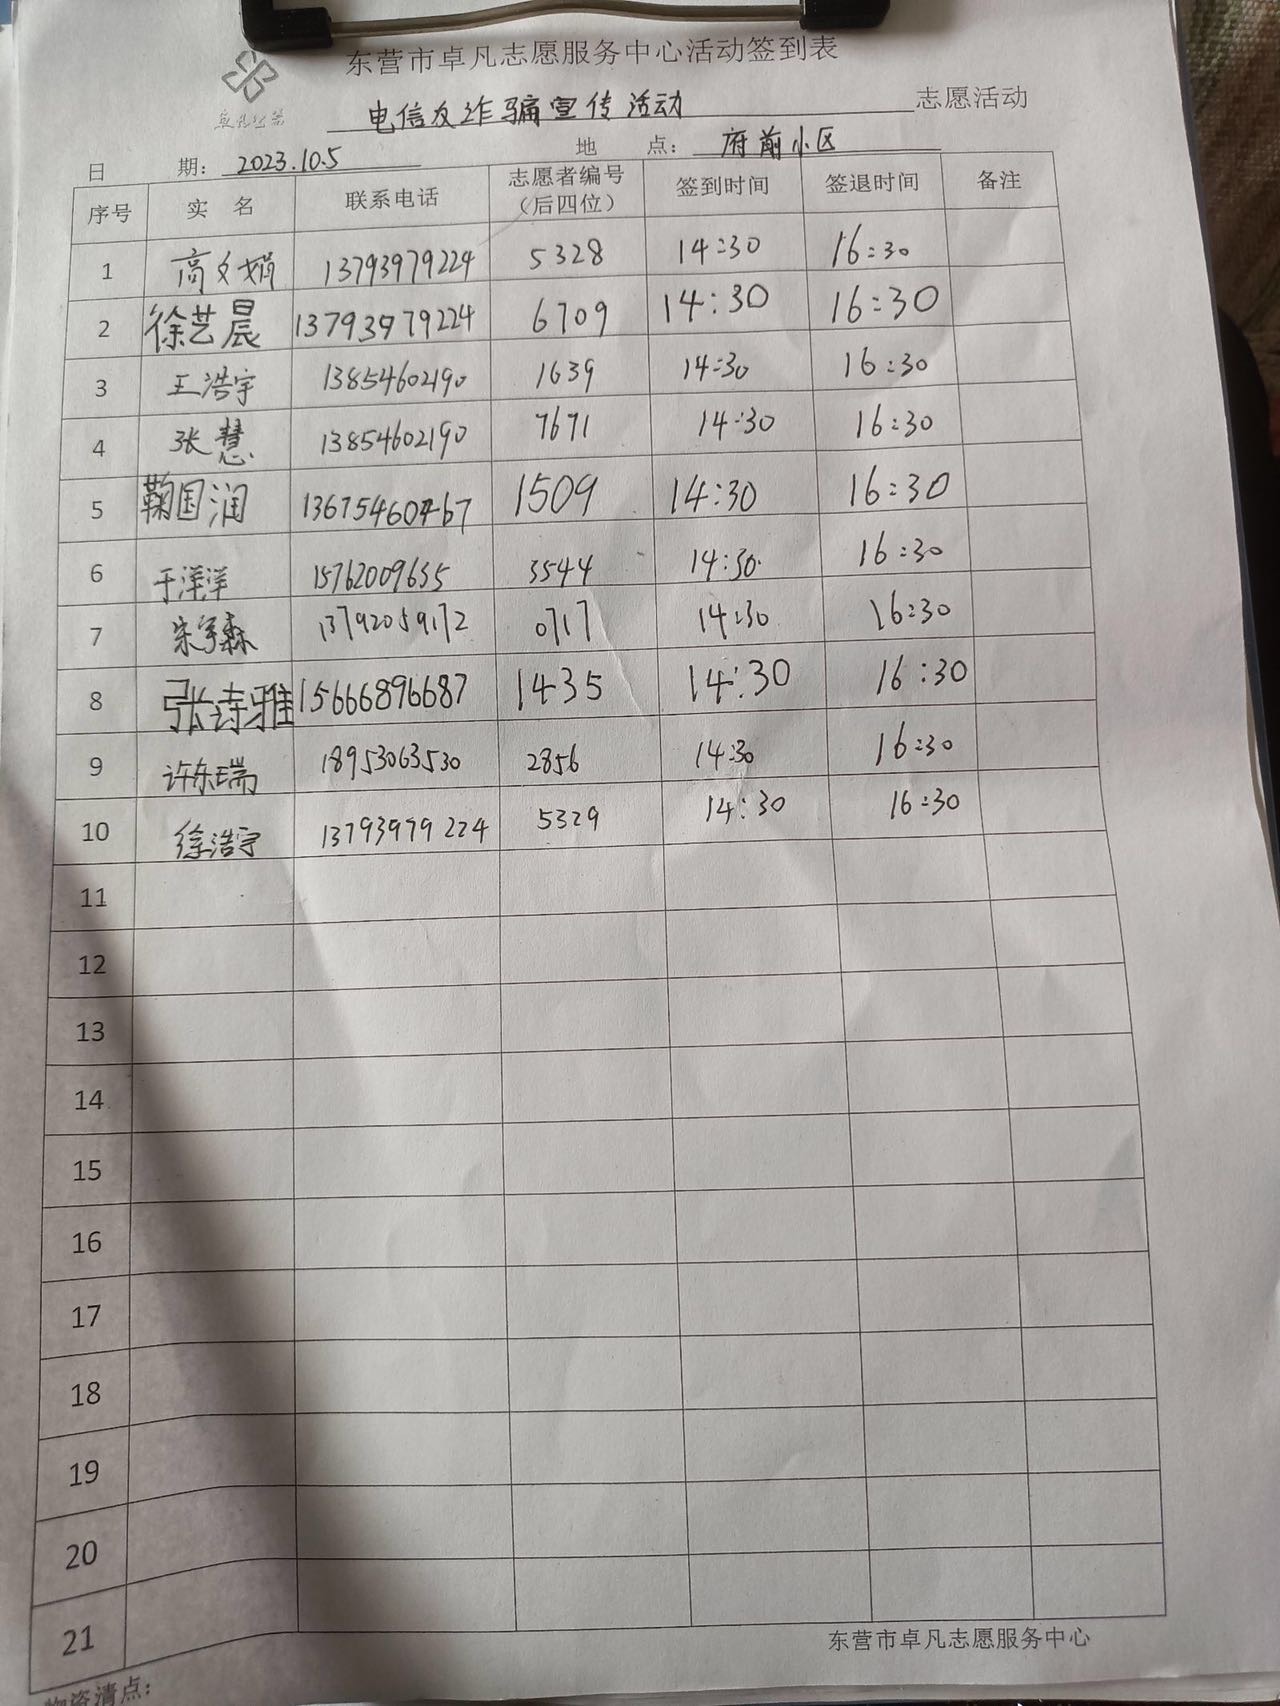 东营市卓凡志愿服务中心活动签到表
卓凡公益
电信反诈骗宣传活动 志愿活动
日 期： 2023.10.5 地 点： 府前小区
序号 实 名 联系电话 志愿者编号（后四位） 签到时间 签退时间 备注
1 高文娟 13793979224 5328 14:30 16:30
2 徐艺晨 13793979224 6709 14:30 16:30
3 王浩宇 13854602190 1639 14:30 16:30
4 张慧 13854602190 7671 14:30 16:30
5 鞠国润 13675460467 1509 14:30 16:30
6 于洋洋 15762009635 3544 14:30 16:30
7 宋宇森 13792059172 0717 14:30 16:30
8 张诗雅 15666896687 1435 14:30 16:30
9 许东瑞 18953063530 2856 14:30 16:30
10 徐浩宇 13793979224 5329 14:30 16:30
11
12
13
14
15
16
17
18
19
20
21
东营市卓凡志愿服务中心
物资清点：